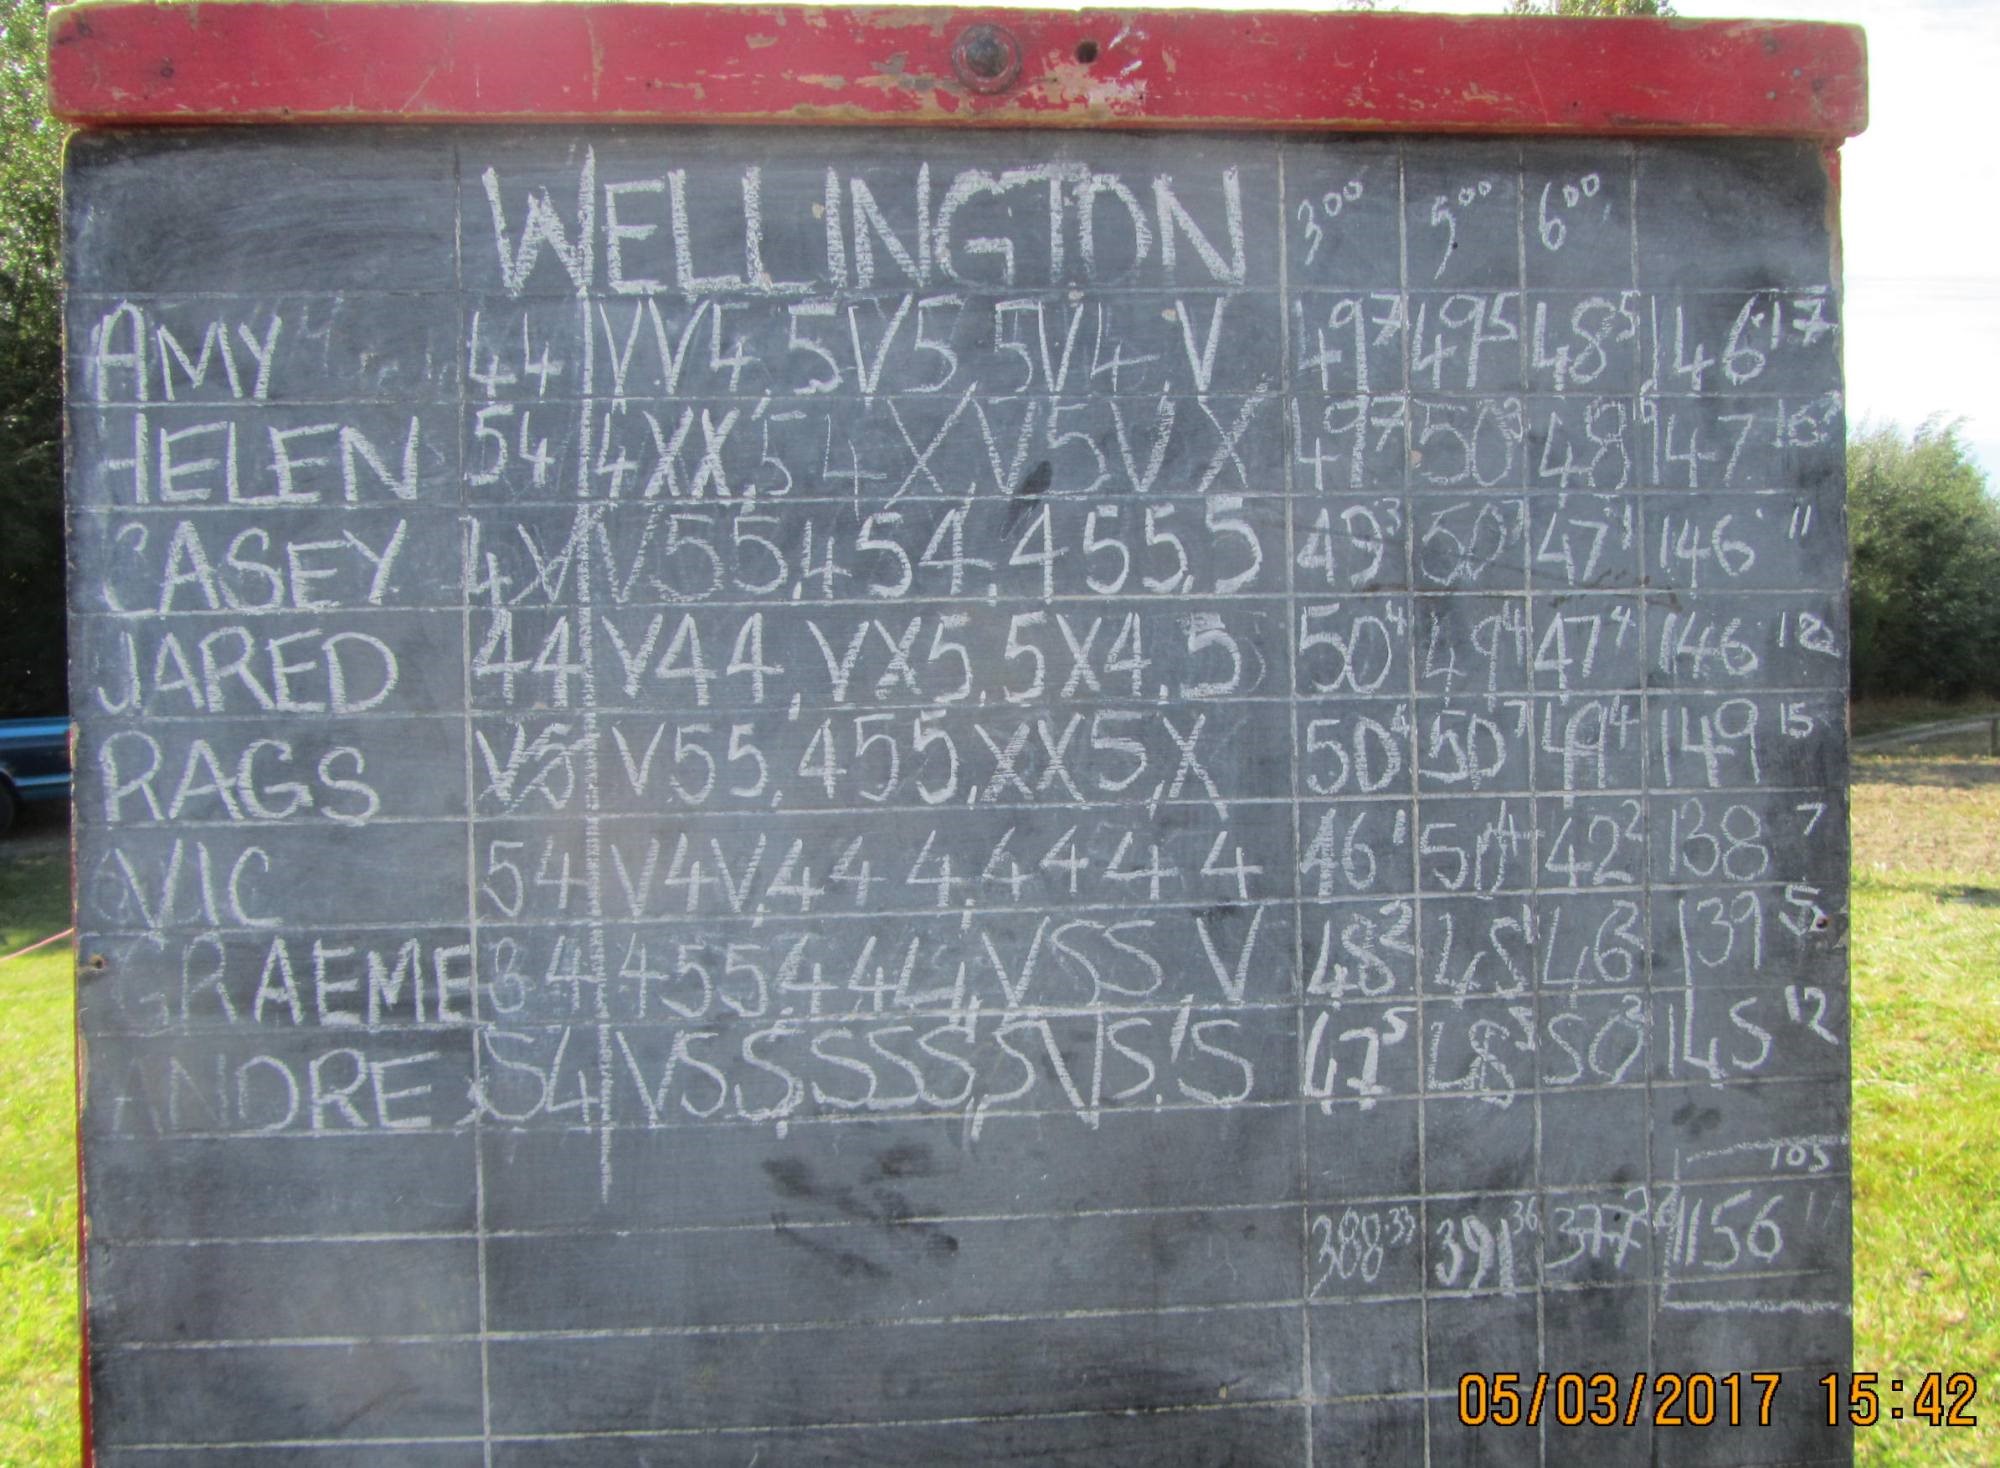 WELLINGTON 3⁰⁰ 5⁰⁰ 6⁰⁰
AMY 44 VV4,5V5,5V4,V 49⁷ 49⁵ 48⁵ 146·17
HELEN 54 4XX,54X,V5V,X 49⁷ 50³ 48 147
CASEY 4X V55,454,455,5 49³ 50⁷ 47¹ 146 11
JARED 44 V44,VX5,5X4,5 50⁴ 49⁴ 47⁴ 146 12
RAGS V5 V55,455,XX5,X 50⁴ 50⁷ 49⁴ 149 15
VIC 54 V4V,444,444 4 46¹ 50⁴ 42² 138 7
GRAEME 34 455,444,V55,V 48² 45¹ 46² 139 5
ANDRE 54 V55,555,5V5,5 47⁵ 48⁵ 50² 145 12
105
388·33 391³⁶ 377 1156
05/03/2017 15:42